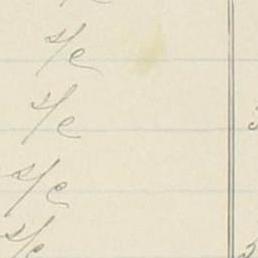 s/e
s/e
s/e
s/e